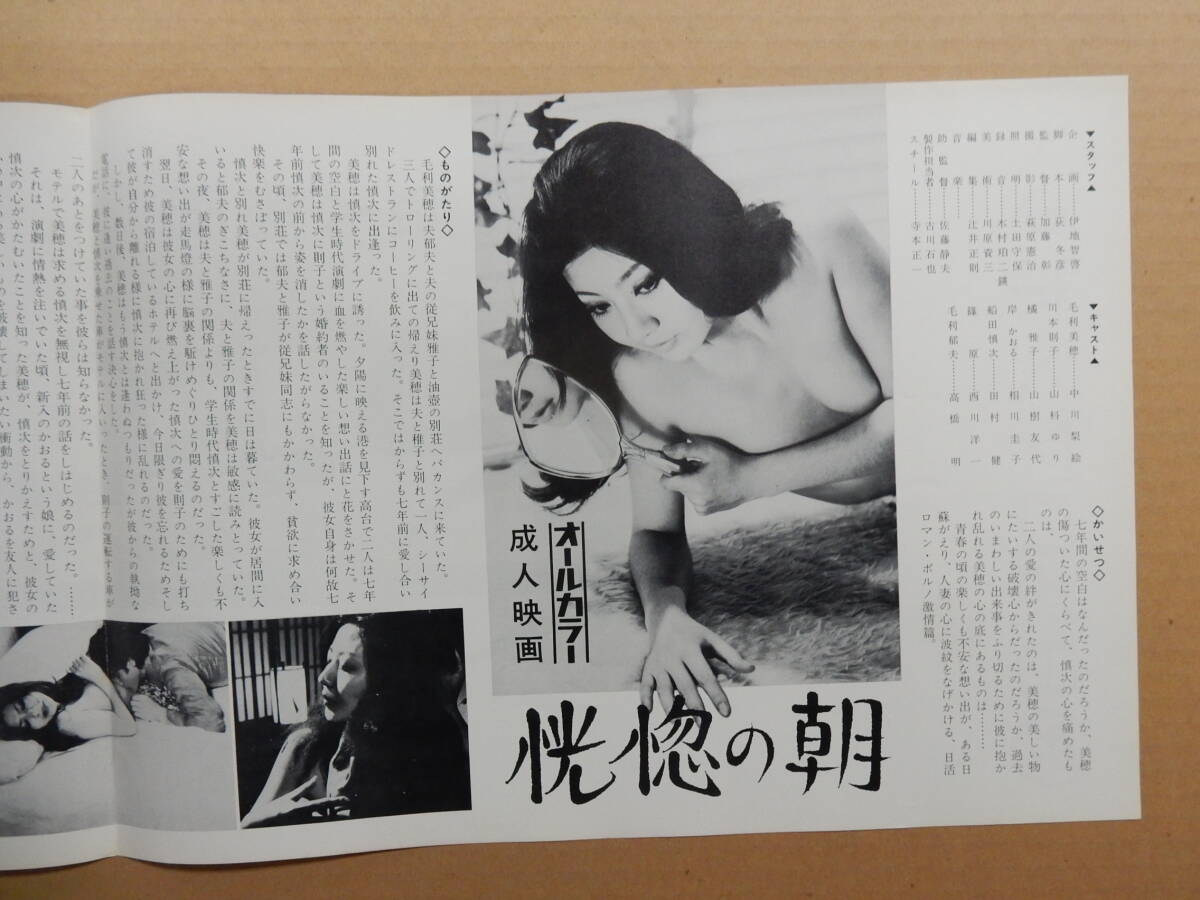 ▼スタッフ▲
企画……伊地智啓
脚本……荻冬彦
監督……加藤彰
撮影……萩原憲治
照明……土田守保
録音……木村瑛二
美術……川原資三
編集……辻井正則
音楽……
助監督……佐藤静夫
製作担当者……古川石也
スチール……寺本正一
▼キャスト▲
毛利美穂……中川梨絵
川本則子……山科ゆり
橘雅子……山樹友代
岸かおる……相川圭子
船田慎次……田村健
篠原……西川洋一
毛利郁夫……高橋明
◇かいせつ◇
七年間の空白はなんだったのだろうか、美穂
の傷ついた心にくらべて、慎次の心を痛めたも
のは、
二人の愛の絆がきれたのは、美穂の美しい物
にたいする破壊心からだったのだろうか、過去
のいまわしい出来事をふり切るために彼に抱か
れ乱れる美穂の心の底にあるものは………
青春の頃の楽しくも不安な想い出が、ある日
蘇がえり、人妻の心に波紋をなげかける、日活
ロマン・ポルノ激情篇。
オールカラー
成人映画
恍惚の朝
◇ものがたり◇
毛利美穂は夫郁夫と夫の従兄妹雅子と油壺の別荘へバカンスに来ていた。
三人でトローリングに出ての帰えり美穂は夫と稚子と別れて一人、シーサイ
ドレストランにコーヒーを飲みに入った。そこではからずも七年前に愛し合い
別れた慎次に出逢った。
美穂は慎次をドライブに誘った。夕陽に映える港を見下す高台で二人は七年
間の空白と学生時代演劇に血を燃やした楽しい想い出話にと花をさかせた。そ
して美穂は慎次に則子という婚約者のいることを知ったが、彼女自身は何故七
年前慎次の前から姿を消したかを話したがらなかった。
その頃、別荘では郁夫と雅子が従兄妹同志にもかかわらず、貧欲に求め合い
快楽をむさぼっていた。
慎次と別れ美穂が別荘に帰えったときすでに日は暮ていた。彼女が居間に入
いると郁夫のぎこちなさに、夫と雅子の関係を美穂は敏感に読みとっていた。
その夜、美穂は夫と雅子の関係よりも、学生時代慎次とすごした楽しくも不
安な想い出が走馬燈の様に脳裏を駆けめぐりひとり悶えるのだった。
翌日、美穂は彼女の心に再び燃え上がった慎次への愛を則子のためにも打ち
消すため彼の宿泊しているホテルへと出かけ、今日限り彼を忘れるためそし
て彼が自分から離れる様に慎次に抱かれ狂った様に乱れるのだった。
しかし、数日後、美穂はもう慎次とは逢わぬつもりだったが彼からの執拗な
電話に、彼に逢い過去のことを話す決心をした。
だが、美穂と慎次を乗せた車がモテルに入ったとき、則子の運転する車が
二人のあとをつけていた事を彼らは知らなかった。
モテルで美穂は求める慎次を無視し七年前の話をしはじめるのだった。………
それは、演劇に情熱を注いでいた頃、新入のかおるという娘に、愛していた
慎次の心がかたむいたことを知った美穂が、慎次をとりかえすためと、彼女の
美しいものを破壊してしまいたい衝動から、かおるを友人に犯さ